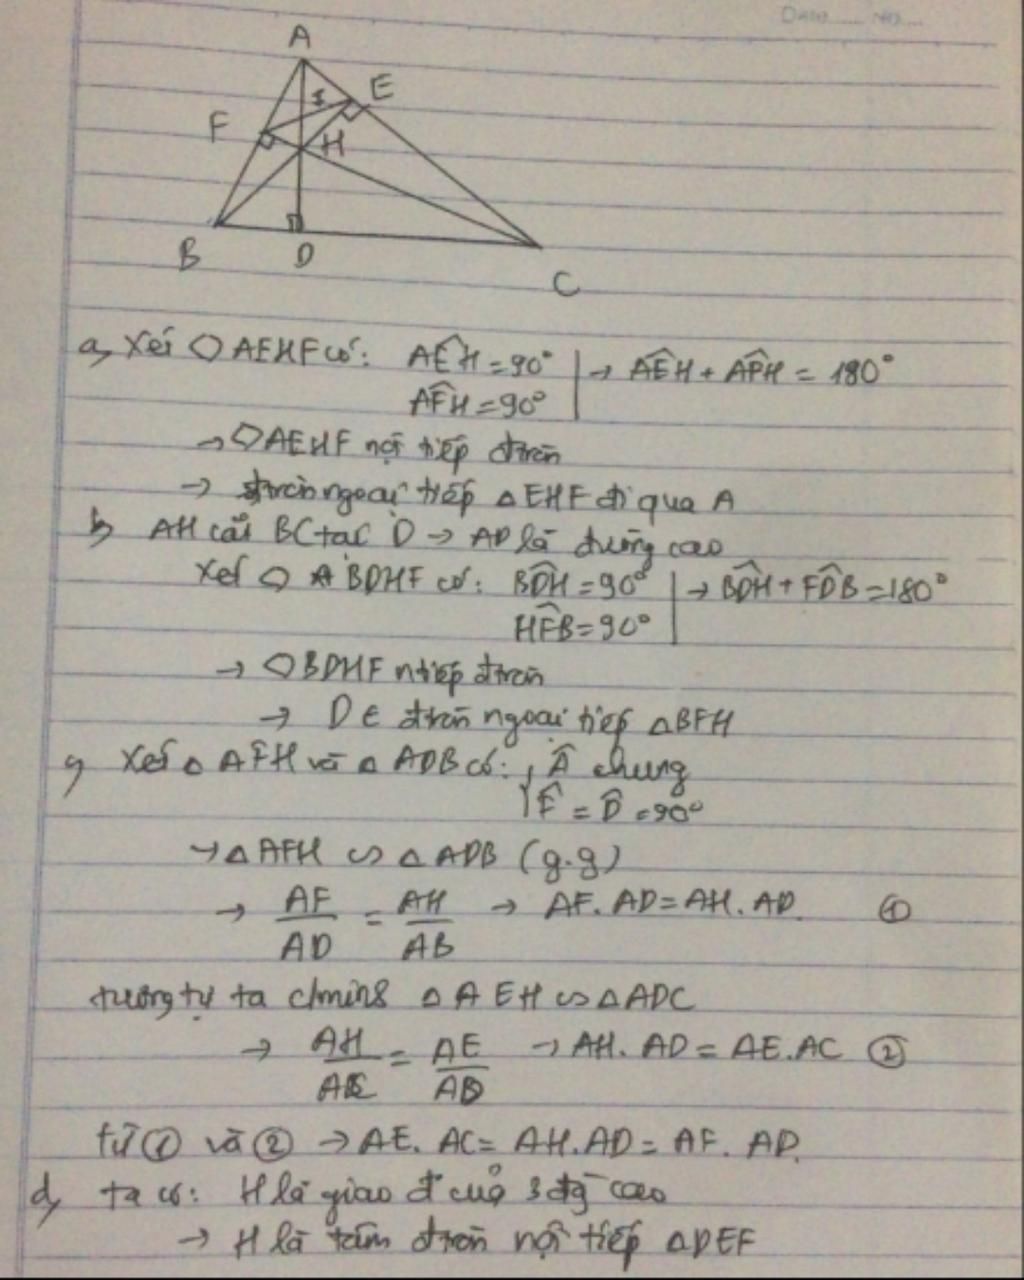 DATE NO
A
E
F
I
H
B
D
C
a, Xét ◇ AEHF có: AÊH = 90° | → AÊH + AF̂H = 180°
AF̂H = 90°
→ ◇AEHF nội tiếp đtròn
→ đtròn ngoại tiếp △EHF đi qua A
b, AH cắt BC tại D → AD là đường cao
Xét ◇ BDHF có: BD̂H = 90° | → BD̂H + FD̂B = 180°
HF̂B = 90°
→ ◇BDHF ntiếp đtròn
→ D ∈ đtròn ngoại tiếp △BFH
c, Xét △ AFH và △ ADB có: Â chung
F̂ = D̂ = 90°
→ △ AFH ∽ △ ADB (g.g)
→ AF/AD = AH/AB → AF. AD = AH. AD. ①
tương tự ta c/minh △ AEH ∽ △ADC
→ AH/AC = AE/AD → AH. AD = AE.AC ②
từ ① và ② → AE. AC = AH.AD = AF. AD.
d, ta có: H là giao đ của 3 đg cao
→ H là tâm đtròn nội tiếp △DEF